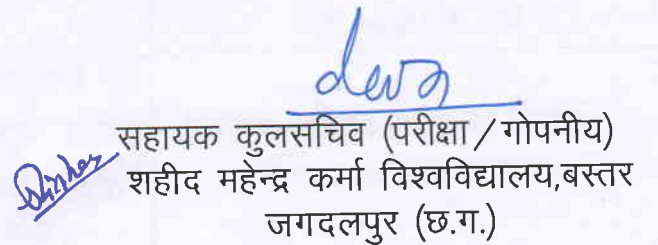 सहायक कुलसचिव (परीक्षा/गोपनीय)
शहीद महेन्द्र कर्मा विश्वविद्यालय,बस्तर
जगदलपुर (छ.ग.)